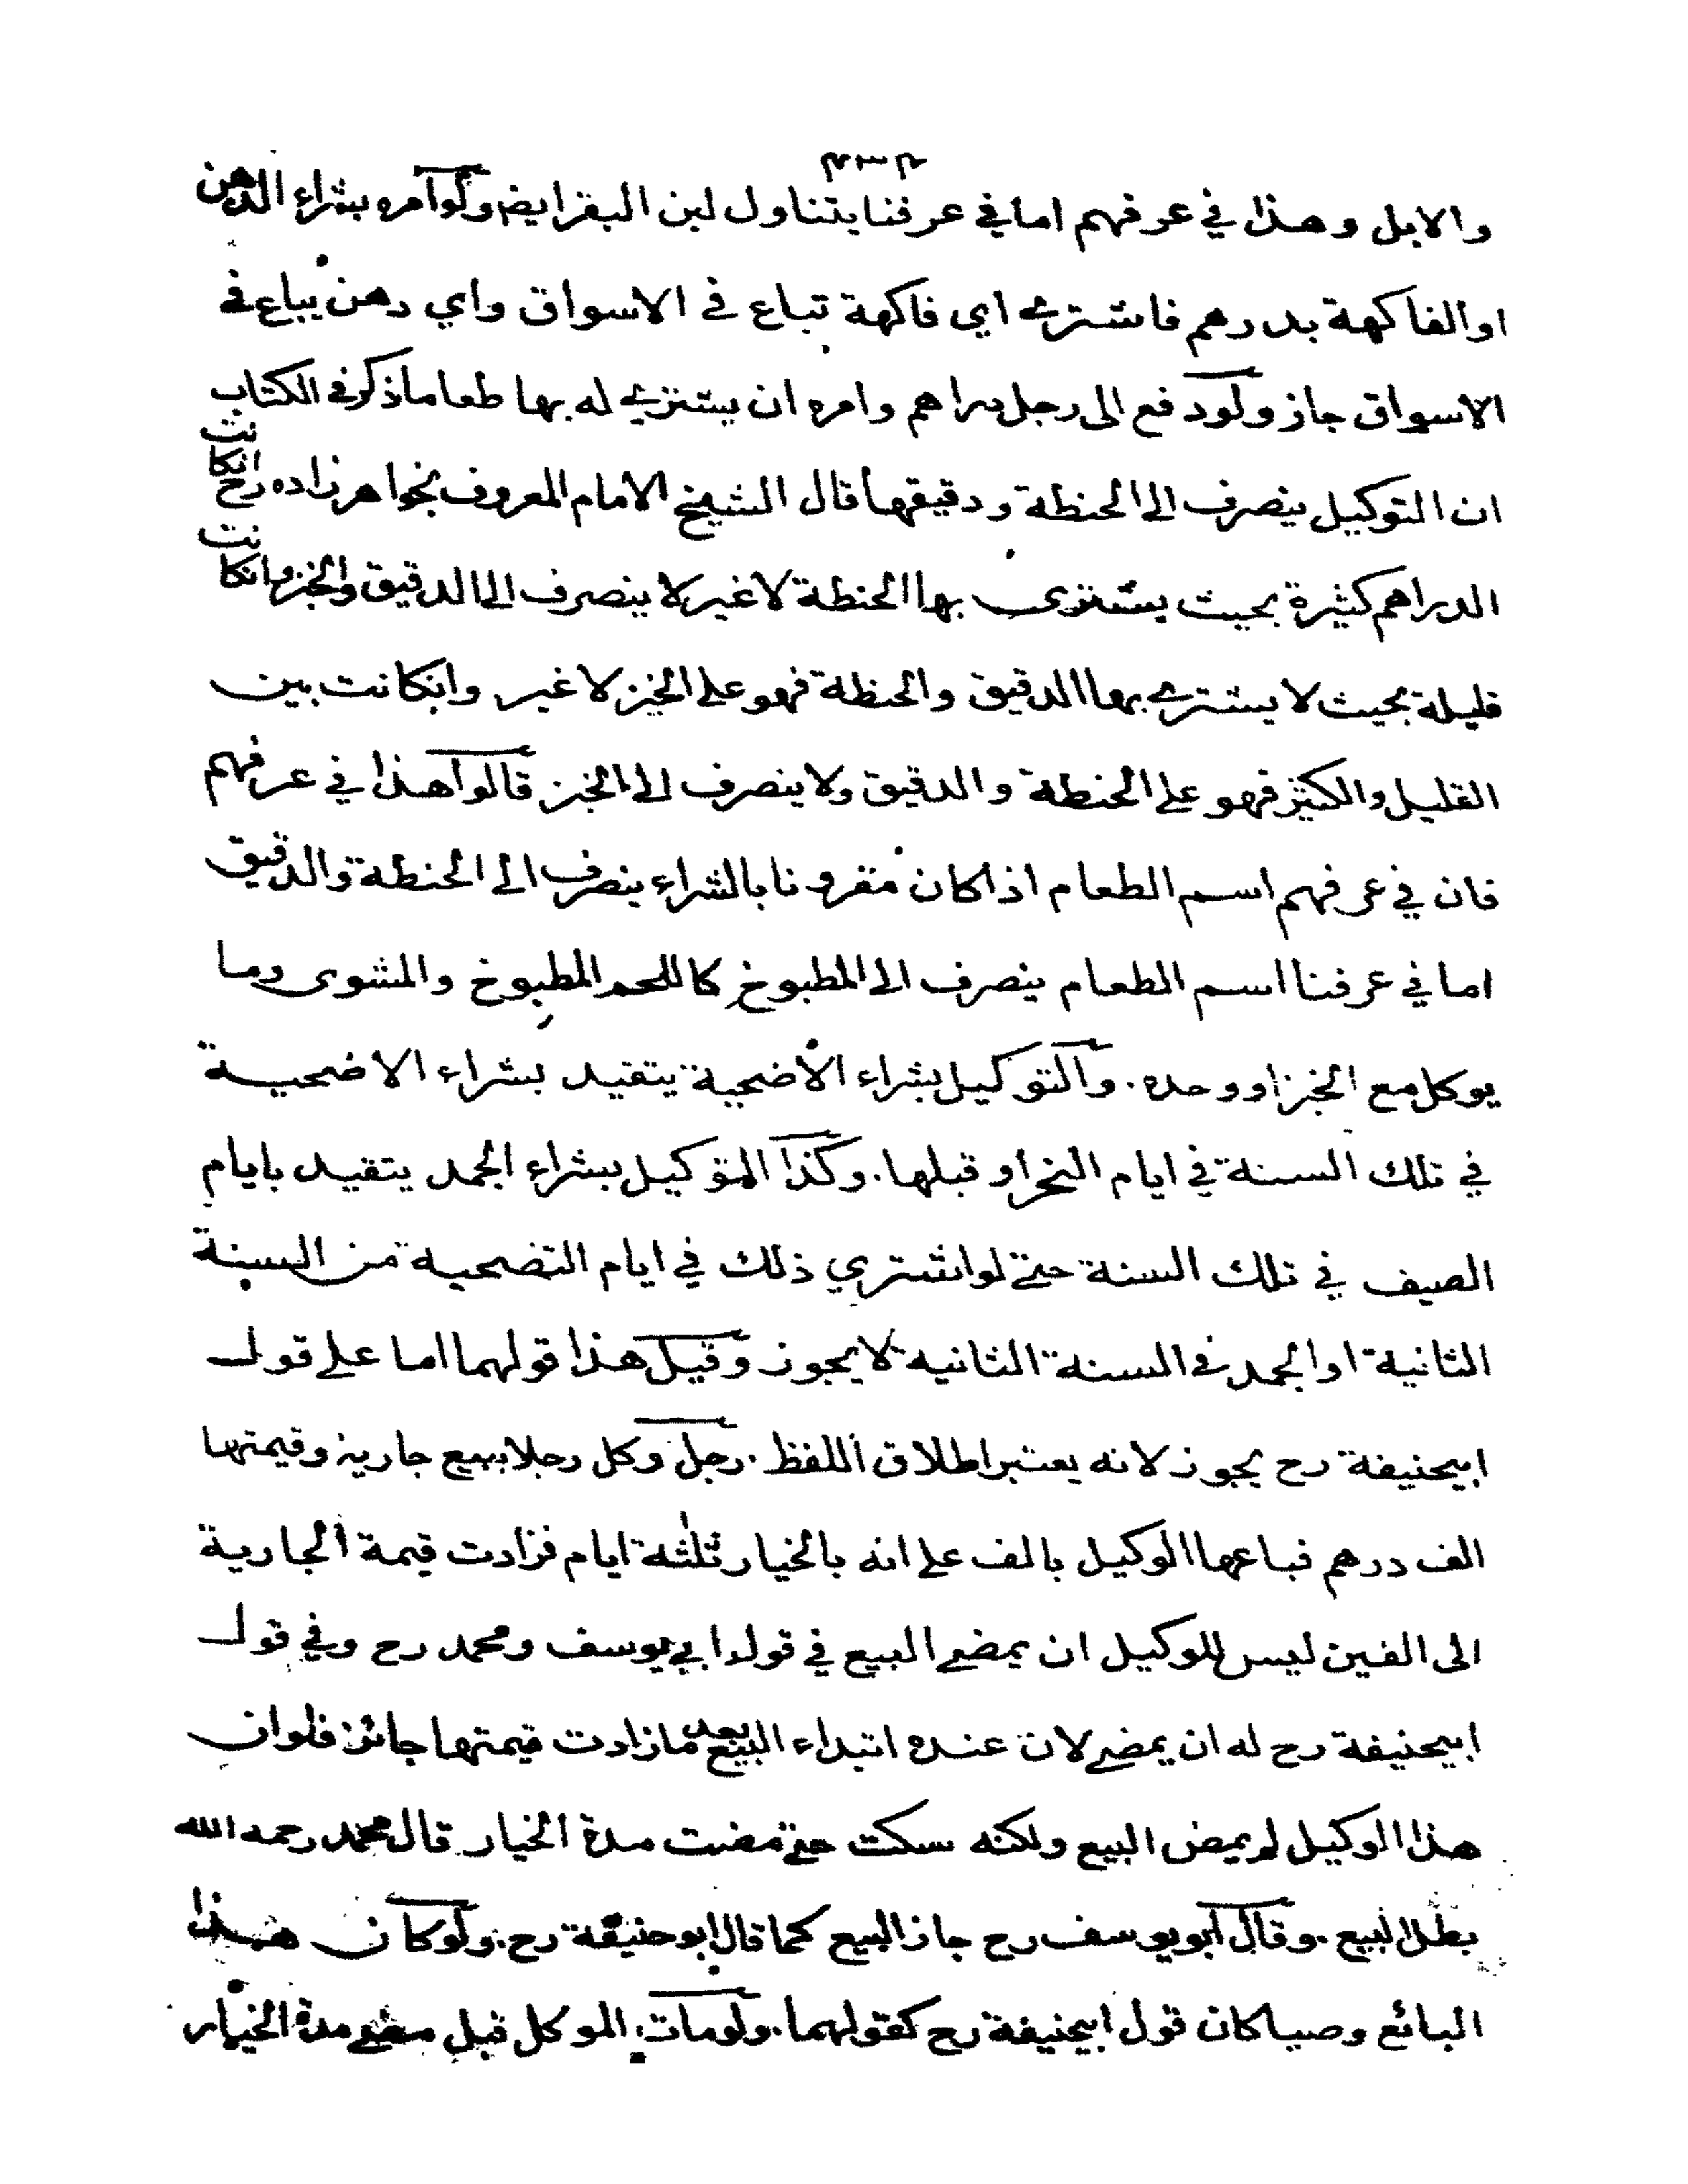 ٤٣٢
والابل وهذا في عرفهم اما في عرفنا يتناول لبن البقر ايضا ولو امره بشراء الدهن
او الفاكهة بدرهم فاشترى اي فاكهة تباع في الاسواق واي دهن يباع في
الاسواق جاز ولو دفع الى رجل دراهم وامره ان يشتري له بها طعاما ذكر في الكتاب
ان التوكيل ينصرف الى الحنطة ودقيقها قال الشيخ الامام المعروف بخواهر زاده رح انكانت
الدراهم كثيرة بحيث يشترى بها الحنطة لا غير لا ينصرف الى الدقيق والخبز وانكانت
قليلة بحيث لا يشترى بها الدقيق والحنطة فهو على الخبز لا غير وانكانت بين
القليل والكثير فهو على الحنطة والدقيق ولا ينصرف الى الخبز قالوا هذا في عرفهم
فان في عرفهم اسم الطعام اذا كان مقرونا بالشراء ينصرف الى الحنطة والدقيق
اما في عرفنا اسم الطعام ينصرف الى المطبوخ كاللحم المطبوخ والمشوى وما
يوكل مع الخبز او وحده . والتوكيل بشراء الاضحية يتقيد بشراء الاضحية
في تلك السنة في ايام النحر او قبلها . وكذا التوكيل بشراء الجمد يتقيد بايام
الصيف في تلك السنة حتى لو اشتري ذلك في ايام التضحية من السنة
الثانية او الجمد في السنة الثانية لا يجوز وقيل هذا قولهما اما على قول
ابيحنيفة رح يجوز لانه يعتبر اطلاق اللفظ . رجل وكل رجلا ببيع جارية وقيمتها
الف درهم فباعها الوكيل بالف على انه بالخيار ثلثة ايام فزادت قيمة الجارية
الى الفين ليس للوكيل ان يمضي البيع في قول ابي يوسف ومحمد رح وفي قول
ابيحنيفة رح له ان يمضي لان عنده ابتداء البيع بعد ما زادت قيمتها جائز فلو ان
هذا الوكيل لم يمض البيع ولكنه سكت حتى مضت مدة الخيار قال محمد رحمه الله
بطل البيع . وقال ابو يوسف رح جاز البيع كما قال ابو حنيفة رح . ولو كان هذا
البائع وصيا كان قول ابيحنيفة رح كقولهما . ولو مات الموكل قبل مضي مدة الخيار